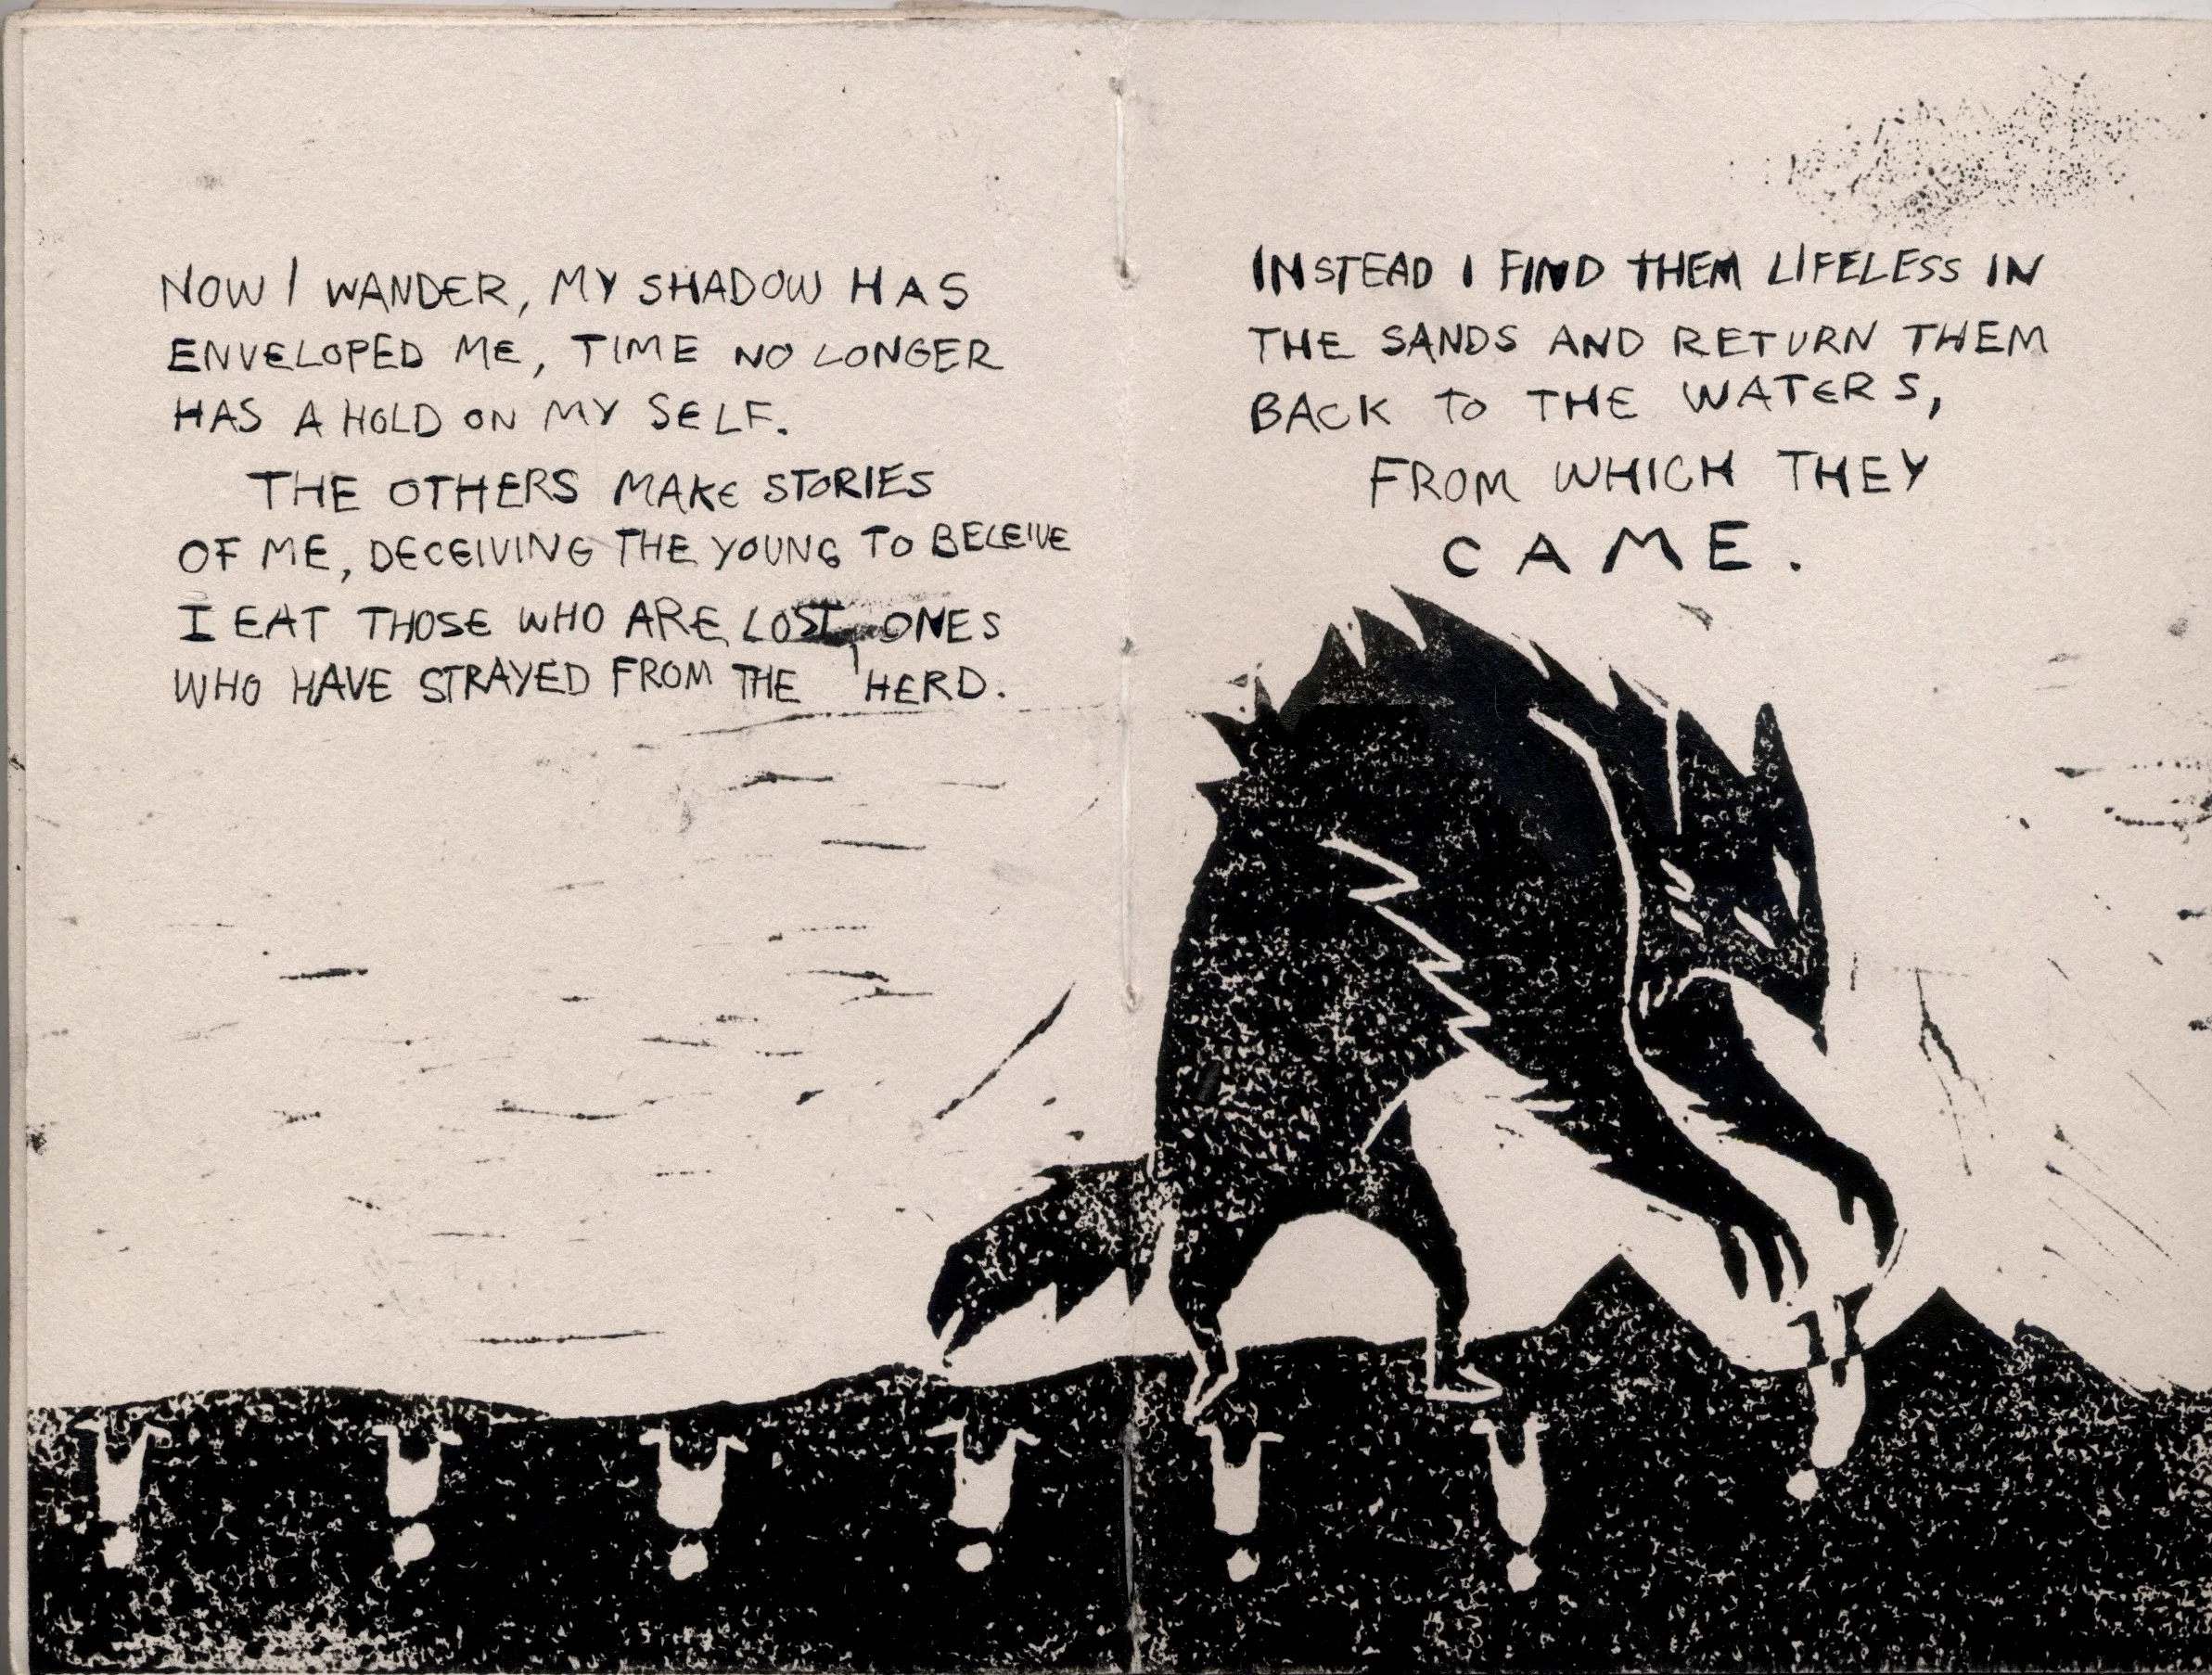 NOW I WANDER, MY SHADOW HAS
ENVELOPED ME, TIME NO LONGER
HAS A HOLD ON MY SELF.
THE OTHERS MAKE STORIES
OF ME, DECEIVING THE YOUNG TO BELEIVE
I EAT THOSE WHO ARE LOST, ONES
WHO HAVE STRAYED FROM THE HERD.
INSTEAD I FIND THEM LIFELESS IN
THE SANDS AND RETURN THEM
BACK TO THE WATERS,
FROM WHICH THEY
CAME.